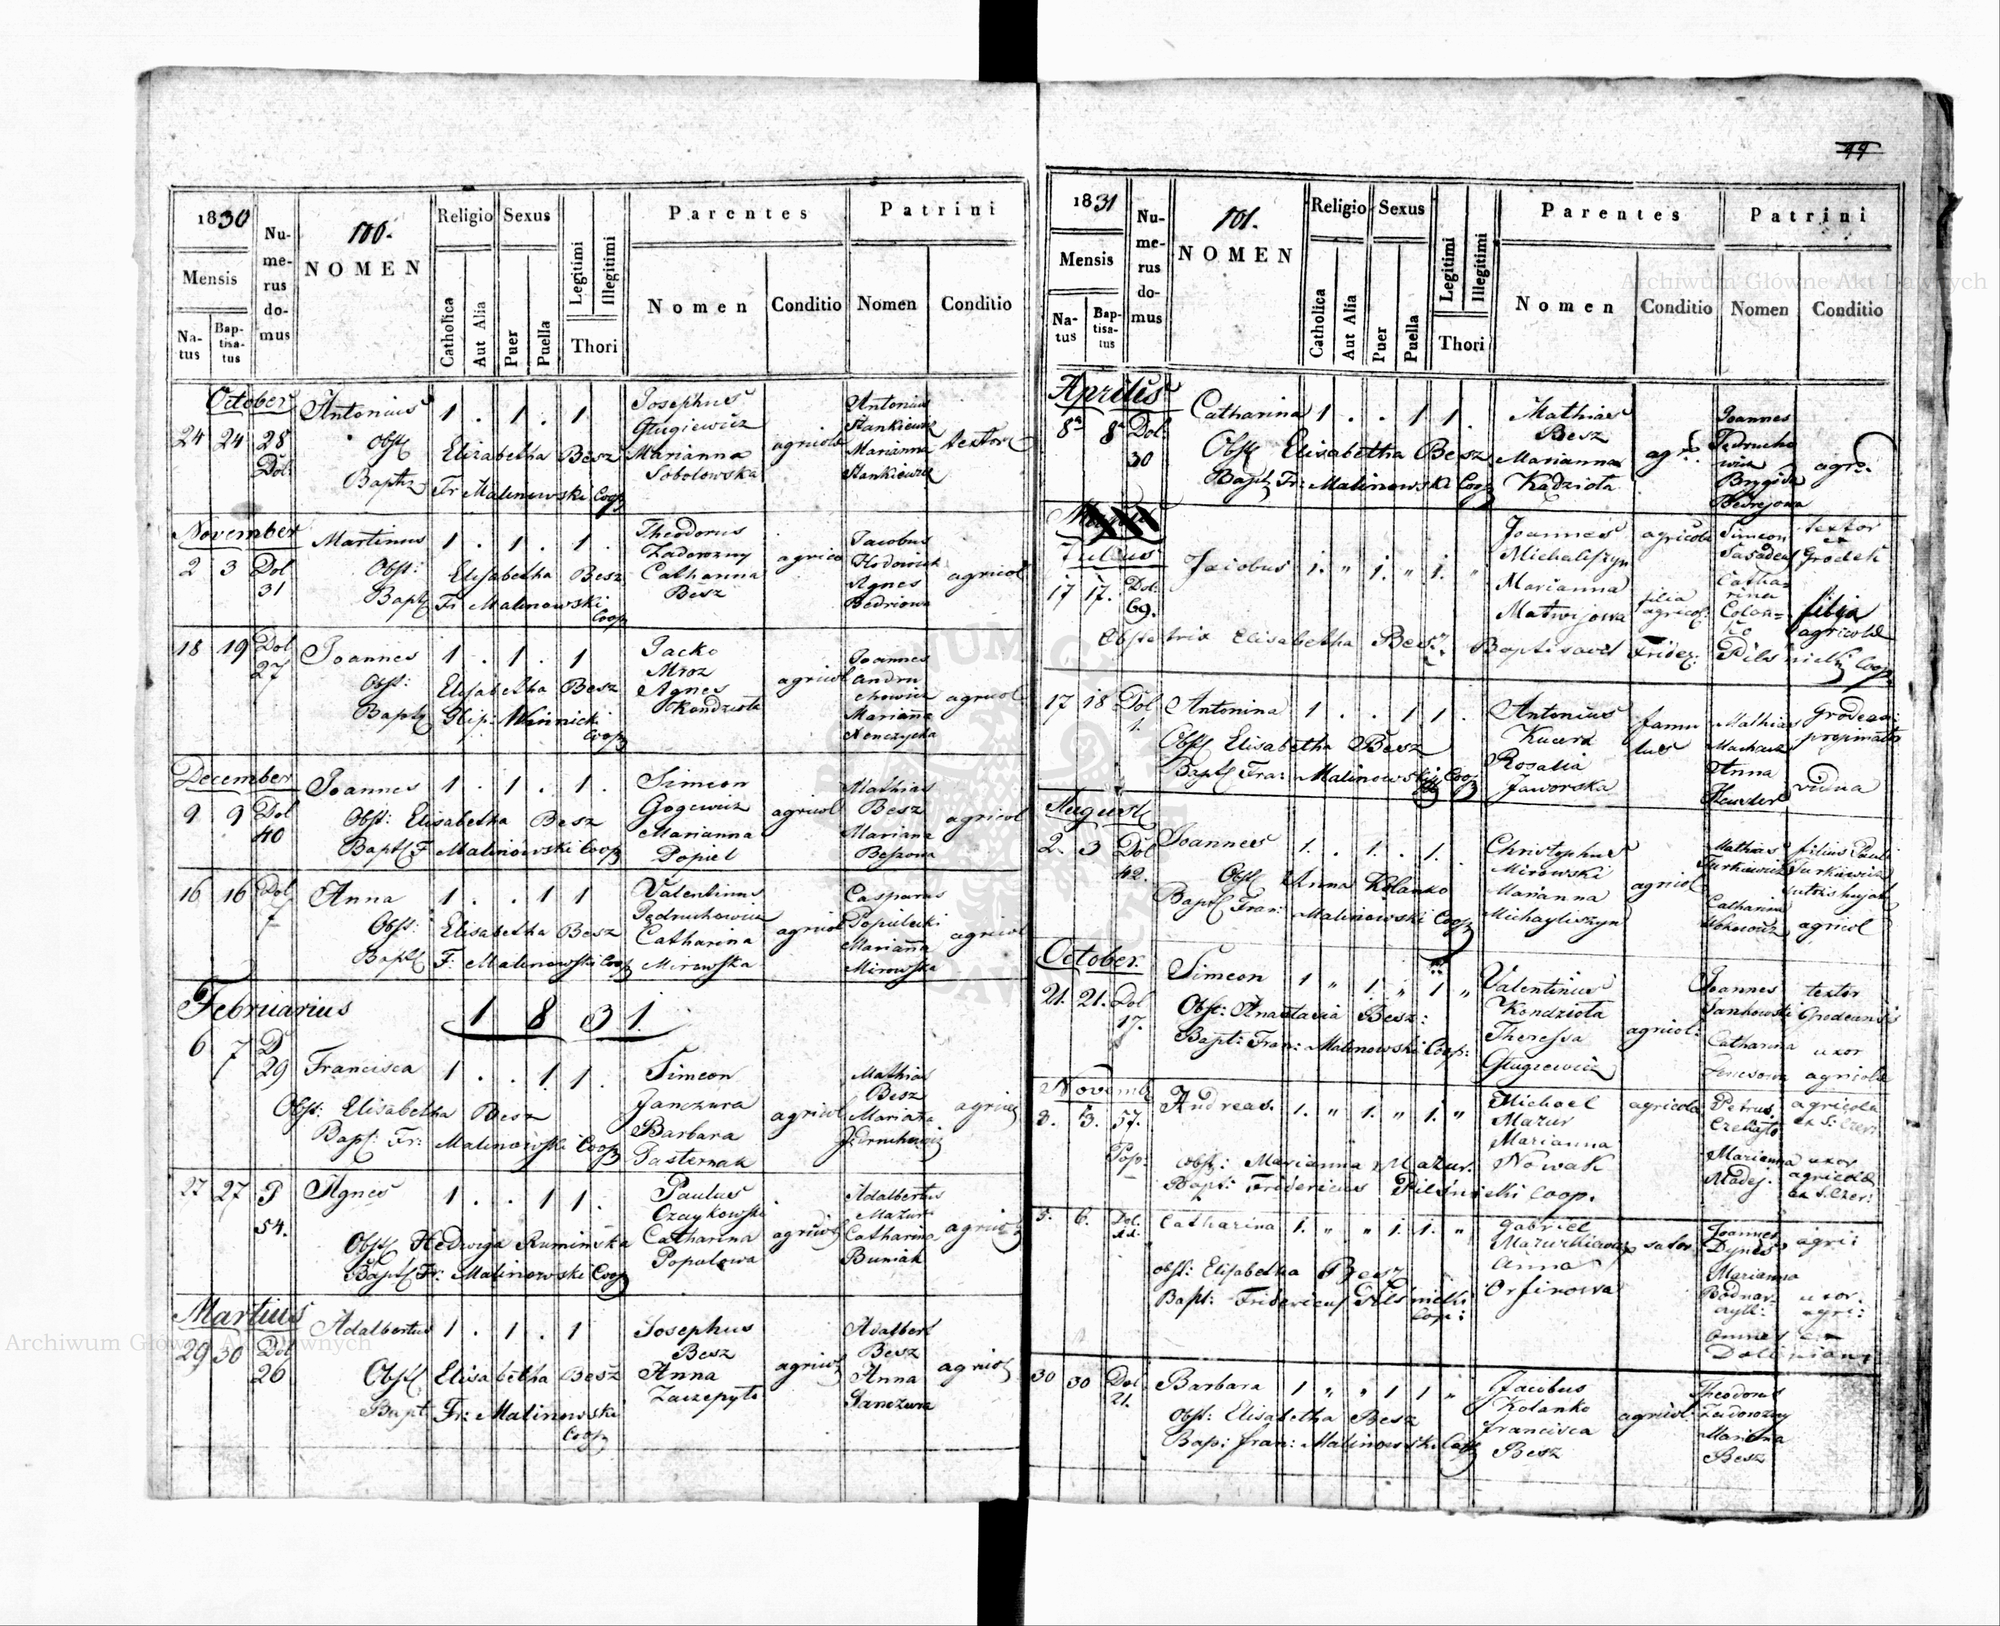 99
1830
Mensis
Natus
Baptisatus
Numerus domus
100.
NOMEN
Religio
Catholica
Aut Alia
Sexus
Puer
Puella
Legitimi
Illegitimi
Thori
Parentes
Nomen
Conditio
Patrini
Nomen
Conditio
October
24 24 28 Dol
Antonius 1 . 1 . 1
Obst Elizabetha Besz
Baptz Fr Malinowski Coop
Josephus
Gługiewicz
Marianna
Sobolowska
agricola
Antonius
Stankiewicz
Marianna
Stankiewicz
textor
November
2 3 Dol 31
Martinus 1 . 1 . 1
Obst: Elisabetha Besz
Bapt Fr Malinowski Coop
Theodorus
Zadorozny
Catharina
Besz
agrico
Jacobus
Agnes
agricol
18 19 Dol 27
Joannes 1 . 1 . 1
Obst: Elisabetha Besz
Bapt Winnicki Coop
Jacko
Mroz
Agnes
Kondziola
agricol
Joannes
Andru
chowicz
Marianna
agricol
December
9 9 Dol 40
Joannes 1 . 1 . 1
Obst: Elisabetha Besz
Bapt F Malinowski Coop
Simeon
Gogiewicz
Marianna
Popiel
agricol
Mathias
Besz
Mariana
Beszowa
agricol
16 16 Dol 7
Anna 1 . . 1 1
Obst: Elisabetha Besz
Bapt F. Malinowski Coop
Valentinus
Jędruchowicz
Catharina
Mirowska
agricol
Casparus
Marianna
Mirowska
agricol
Februarius
1831.
6 7 D 29
Francisca 1 . . 1 1 .
Obst: Elisabetha Besz
Bapt: Fr: Malinowski Coop
Simeon
Janczura
Barbara
Pasternak
agricol
Mathias
Besz
Mariana
agricol
27 27 P 54.
Agnes 1 . . 1 1 .
Obst Hedwiga Ruminska
Bapt Fr: Malinowski Coop
Paulus
Czaykowski
Catharina
Popalowa
agricol
Adalbertus
Mazur
Catharina
Buniak
agricol
Martius
29 30 Dol 26
Adalbertus 1 . 1 . 1
Obst Elisabetha Besz
Bapt Fr: Malinowski
Coop
Josephus
Besz
Anna
Zaczepyto
agricol
Adalbert
Besz
Anna
Janczura
agricol
1831
Mensis
Natus
Baptisatus
Numerus domus
101.
NOMEN
Religio
Catholica
Aut Alia
Sexus
Puer
Puella
Legitimi
Illegitimi
Thori
Parentes
Nomen
Conditio
Patrini
Nomen
Conditio
Aprilis
8a 8a Dol: 30
Catharina 1 . . 1 1 .
Obst Elisabetha Besz
Bapt Fr: Malinowski Coop
Mathias
Besz
Marianna
Kądziola
agr:
Joannes
Jedrucho
wicz
Brygida
agr:
Julius
17 17. Dol: 69.
Jacobus 1. " 1. " 1. "
Obstetrix Elisabetha Besz. Baptisavit Frider: Pilsnielki Coop.
Joannes
Michaliszyn
Marianna
Matwijowa
agricola
filia
agricol:
Simeon
Catha
rina
textor
ex
Grodek
filia
agricolae
17 18 Dol 1.
Antonina 1 . . 1 1 .
Obst Elisabetha Besz
Bapt Fra: Malinowski Coop
Antonius
Kucera
Rosalia
Jaworska
famu
lus
Mathias
Anna
vidua
August
2. 3 Dol 42.
Joannes 1. . 1. . 1.
Obst Anna Kolanko
Bapt Fran: Malinowski Coop
Christophus
Mirowski
Marianna
Michayliszyn
agricol
Mathias
Turkiewicz
Catharina
filius Pauli
Turkiewicz
agricol
October.
21. 21. Dol 17.
Simeon 1 " 1 " 1 "
Obst: Anastasia Besz:
Bapt: Fran: Malinowski Coop:
Valentinus
Kondziola
Theressa
Gługiewicz
agricol:
Joannes
Jankowski
Catharina
textor
Grodecensis
uxor
agricolae
Novemb
3. 3. 57. Pop:
Andreas. 1. " 1. " 1. "
obst: Marianna Mazur.
Bapt: Fridericus Pilsnielki Coop.
Michael
Mazur
Marianna
Nowak
agricola
Petrus
Marianna
Madej.
agricola
uxor
agricolae
5. 6. Dol.
Catharina 1. " " 1 1. "
obst: Elisabetha Besz
Bapt: Fridericus Pilsnielki
Coop:
Gabriel
Anna
Orfinowa
sator
Joannes
Dynes
Marianna
Bodnar
agri:
uxor.
agri:
omnes ex
30 30 Dol. 21.
Barbara 1 " " 1 1 "
Obst: Elisabetha Besz
Bap: Fran: Malinowski Coop
Jacobus
Kolanko
Francisca
Besz
agricol:
Theodorus
Zadorozny
Marianna
Besz
Archiwum Główne Akt Dawnych
Archiwum Główne Akt Dawnych